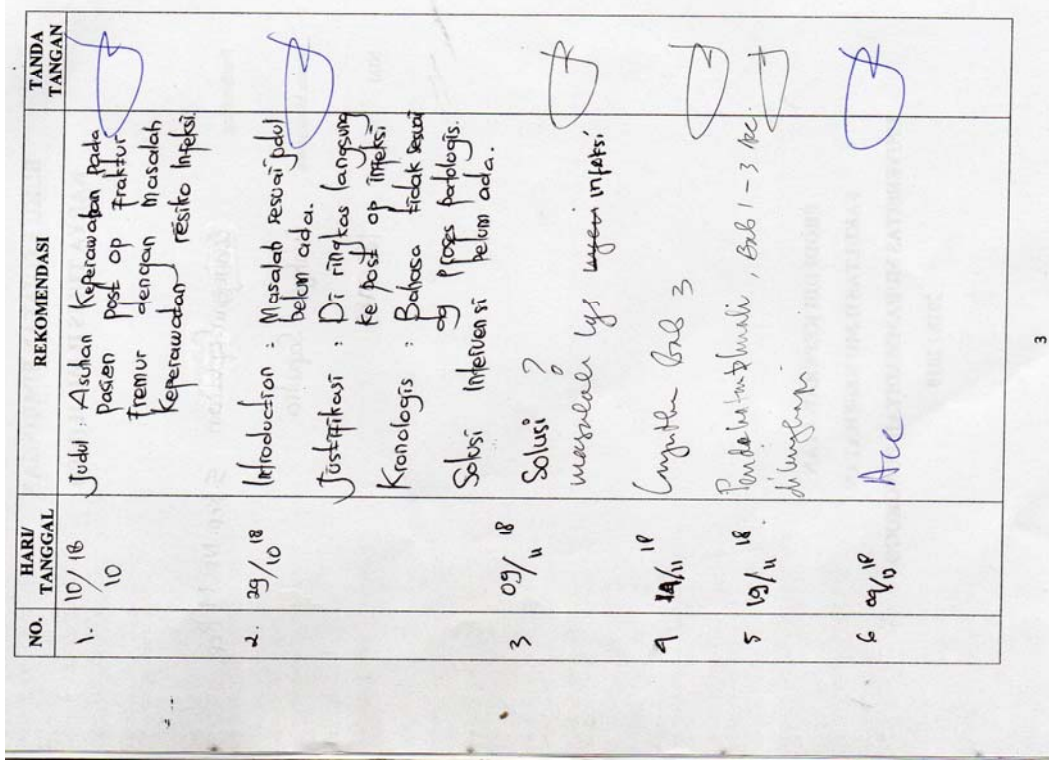 NO.
HARI/
TANGGAL
REKOMENDASI
TANDA
TANGAN
1.
10/10 18
Judul : Asuhan Keperawatan pada
pasien post op Fraktur
Fremur dengan masalah
Keperawatan resiko Infeksi.
2.
29/10 18
Introduction : Masalah sesuai judul
belum ada.
Justifikasi : Di ringkas langsung
ke post op infeksi
Kronologis : Bahasa tidak sesuai
dg Proses patologis.
Solusi Intervensi belum ada.
3
09/11 18
Solusi ?
masalah infeksi
4
/11 18
Bab 3
5
19/11 18
, Bab 1-3 acc
dilengkapi.
6
Acc
3